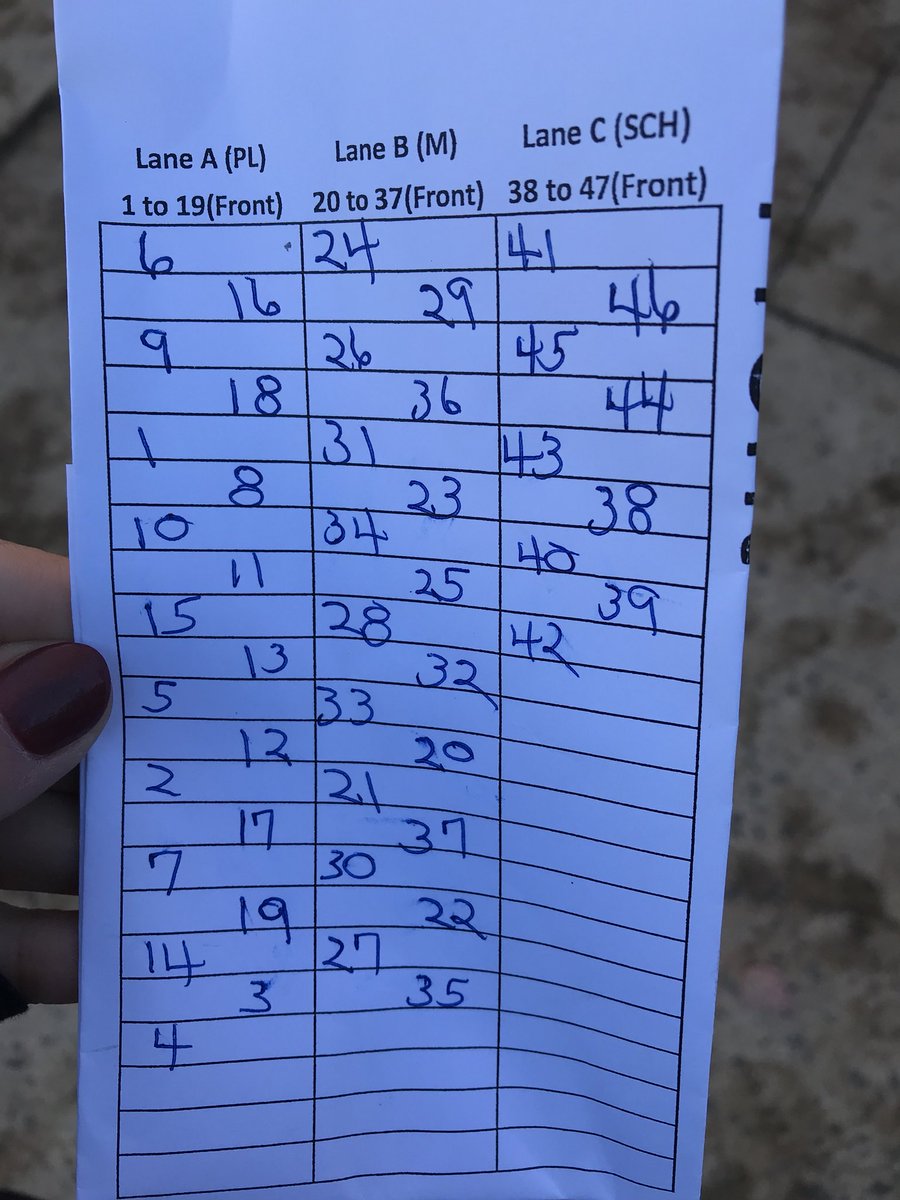 Lane A (PL) Lane B (M) Lane C (SCH)
1 to 19(Front) 20 to 37(Front) 38 to 47(Front)
6 24 41
16 29 46
9 26 45
18 36 44
1 31 43
8 23 38
10 34 40
11 25 39
15 28 42
13 32
5 33
12 20
2 21
17 37
7 30
19 22
14 27
3 35
4